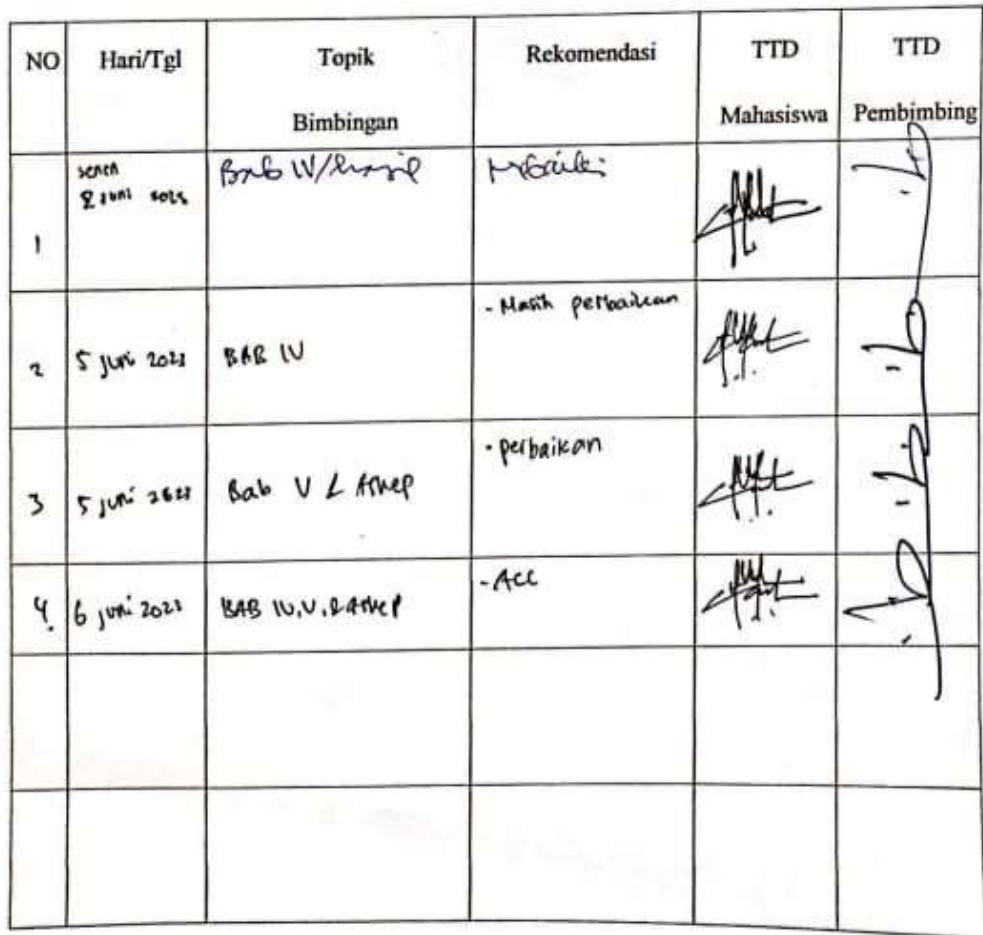 NO Hari/Tgl Topik Bimbingan Rekomendasi TTD Mahasiswa TTD Pembimbing
1 Juni Bab IV/
2 5 Juni 2023 BAB IV - Masih perbaikan
3 5 Juni 2023 Bab V & Askep - perbaikan
4. 6 Juni 2023 BAB IV, V, & Askep - ACC